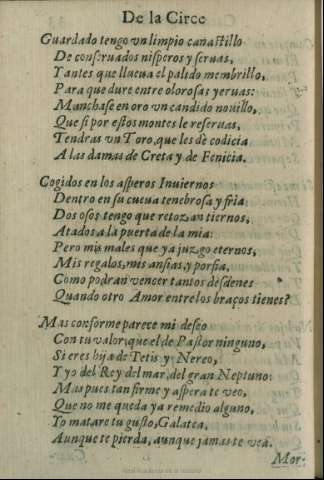 De la Circe
Guardado tengo vn limpio canastillo
De conseruados nisperos y seruas,
Y antes que llueua el palido membrillo,
Para que dure entre olorosas yeruas:
Manchase en oro vn candido nouillo,
Que si por estos montes le reseruas,
Tendras vn Toro, que les dè codicia
A las damas de Creta y de Fenicia.
Cogidos en los asperos Inuiernos
Dentro en su cueua tenebrosa y fria
Dos osos tengo que retozan tiernos,
Atados a la puerta de la mia:
Pero mis males que ya juzgo eternos,
Mis regalos, mis ansias, y porfia,
Como podran vencer tantos desdenes
Quando otro Amor entre los braços tienes?
Mas conforme parece mi deseo
Con tu valor, que el de Pastor ninguno,
Si eres hija de Tetis y Nereo,
Y yo del Rey del mar, del gran Neptuno:
Mas pues tan firme y aspera te veo,
Que no me queda ya remedio alguno,
Yo matare tu gusto, Galatea,
Aunque te pierda, aunque jamas te vea.
Mor-